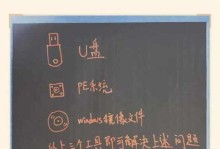 U盘
PE系统
windows镜像文件
以上三个工具即可解决上述问题